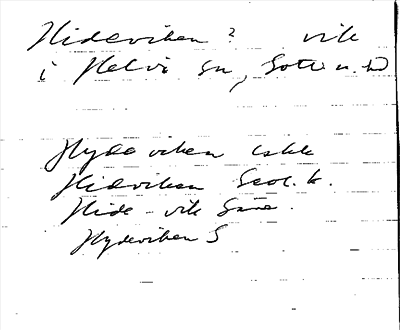 Hideviken? vik
i Hellvi sn, Gotl. n. hd
Hydeviken Eskk
Hideviken Geol. k.
Hide-vik Säve.
Hydeviken S